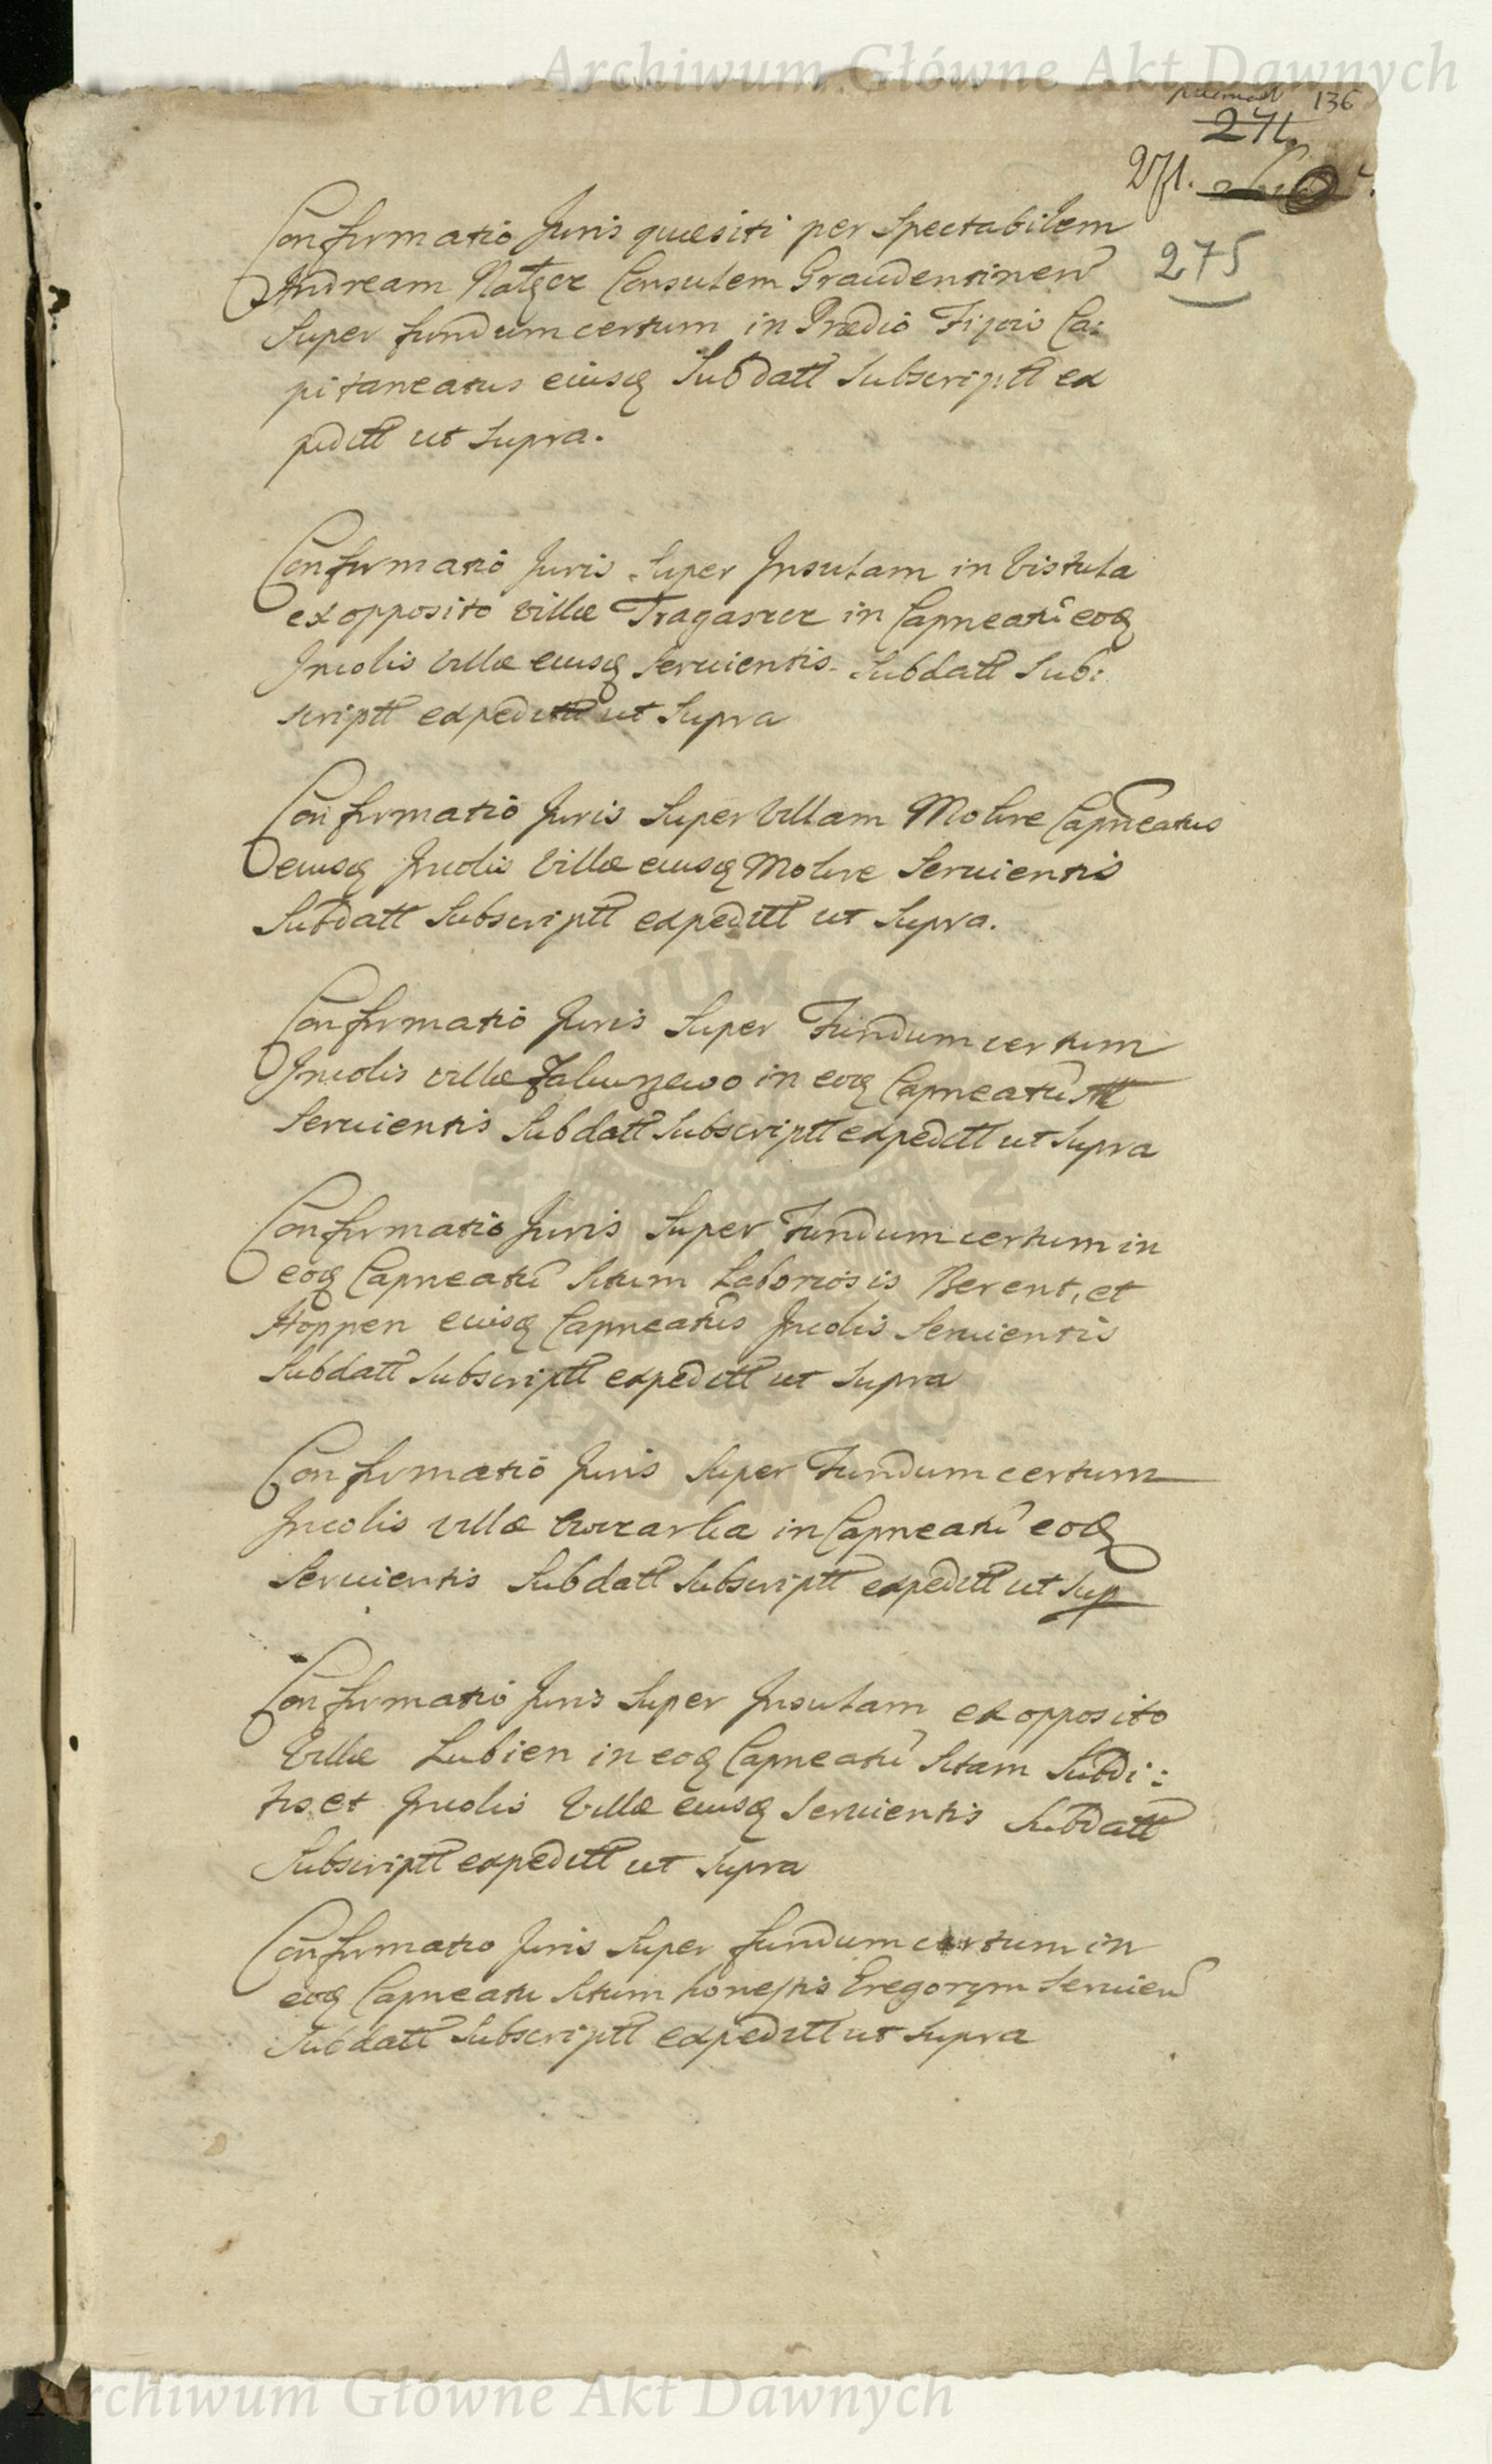 Archiwum Główne Akt Dawnych
136
271.
271.
275
Confirmatio Juris quæsiti per Spectabilem
Andream Natzer Consulem Graudentinen
Super fundum certum in Prædio Ca:
pitaneatus eiusq Subdatt Subscriptt ex
peditt ut Supra.
Confirmatio Juris Super Insulam in Vistula
ex opposito villæ in Capneatu eoq
Incolis Villæ eiusq Servientis Subdatt Sub:
scriptt expeditt ut Supra
Confirmatio Juris Super Villam Molvre Capneatus
eiusq Incolis Villæ eiusq Molvre Servientis
Subdatt Subscriptt expeditt ut Supra.
Confirmatio Juris Super Fundum certum
Incolis villæ in eoq Capneatu
Servientis Subdatt Subscriptt expeditt ut Supra
Confirmatio Juris Super Fundum certum in
eoq Capneatu Situm Laboriosis Berent, et
Hoppen eiusq Capneatus Incolis Servientis
Subdatt Subscriptt expeditt ut Supra
Confirmatio Juris Super Fundum certum
Incolis villæ in Capneatu eoq
Servientis Subdatt Subscriptt expeditt ut Sup
Confirmatio Juris Super Insulam ex opposito
Villæ Lubien in eoq Capneatu Sitam Subdi:
tis et Incolis Villæ eiusq Servientis Subdatt
Subscriptt expeditt ut Supra
Confirmatio Juris Super fundum certum in
eoq Capneatu Situm honestis Gregorym Servien
Subdatt Subscriptt expeditt ut Supra
Archiwum Główne Akt Dawnych